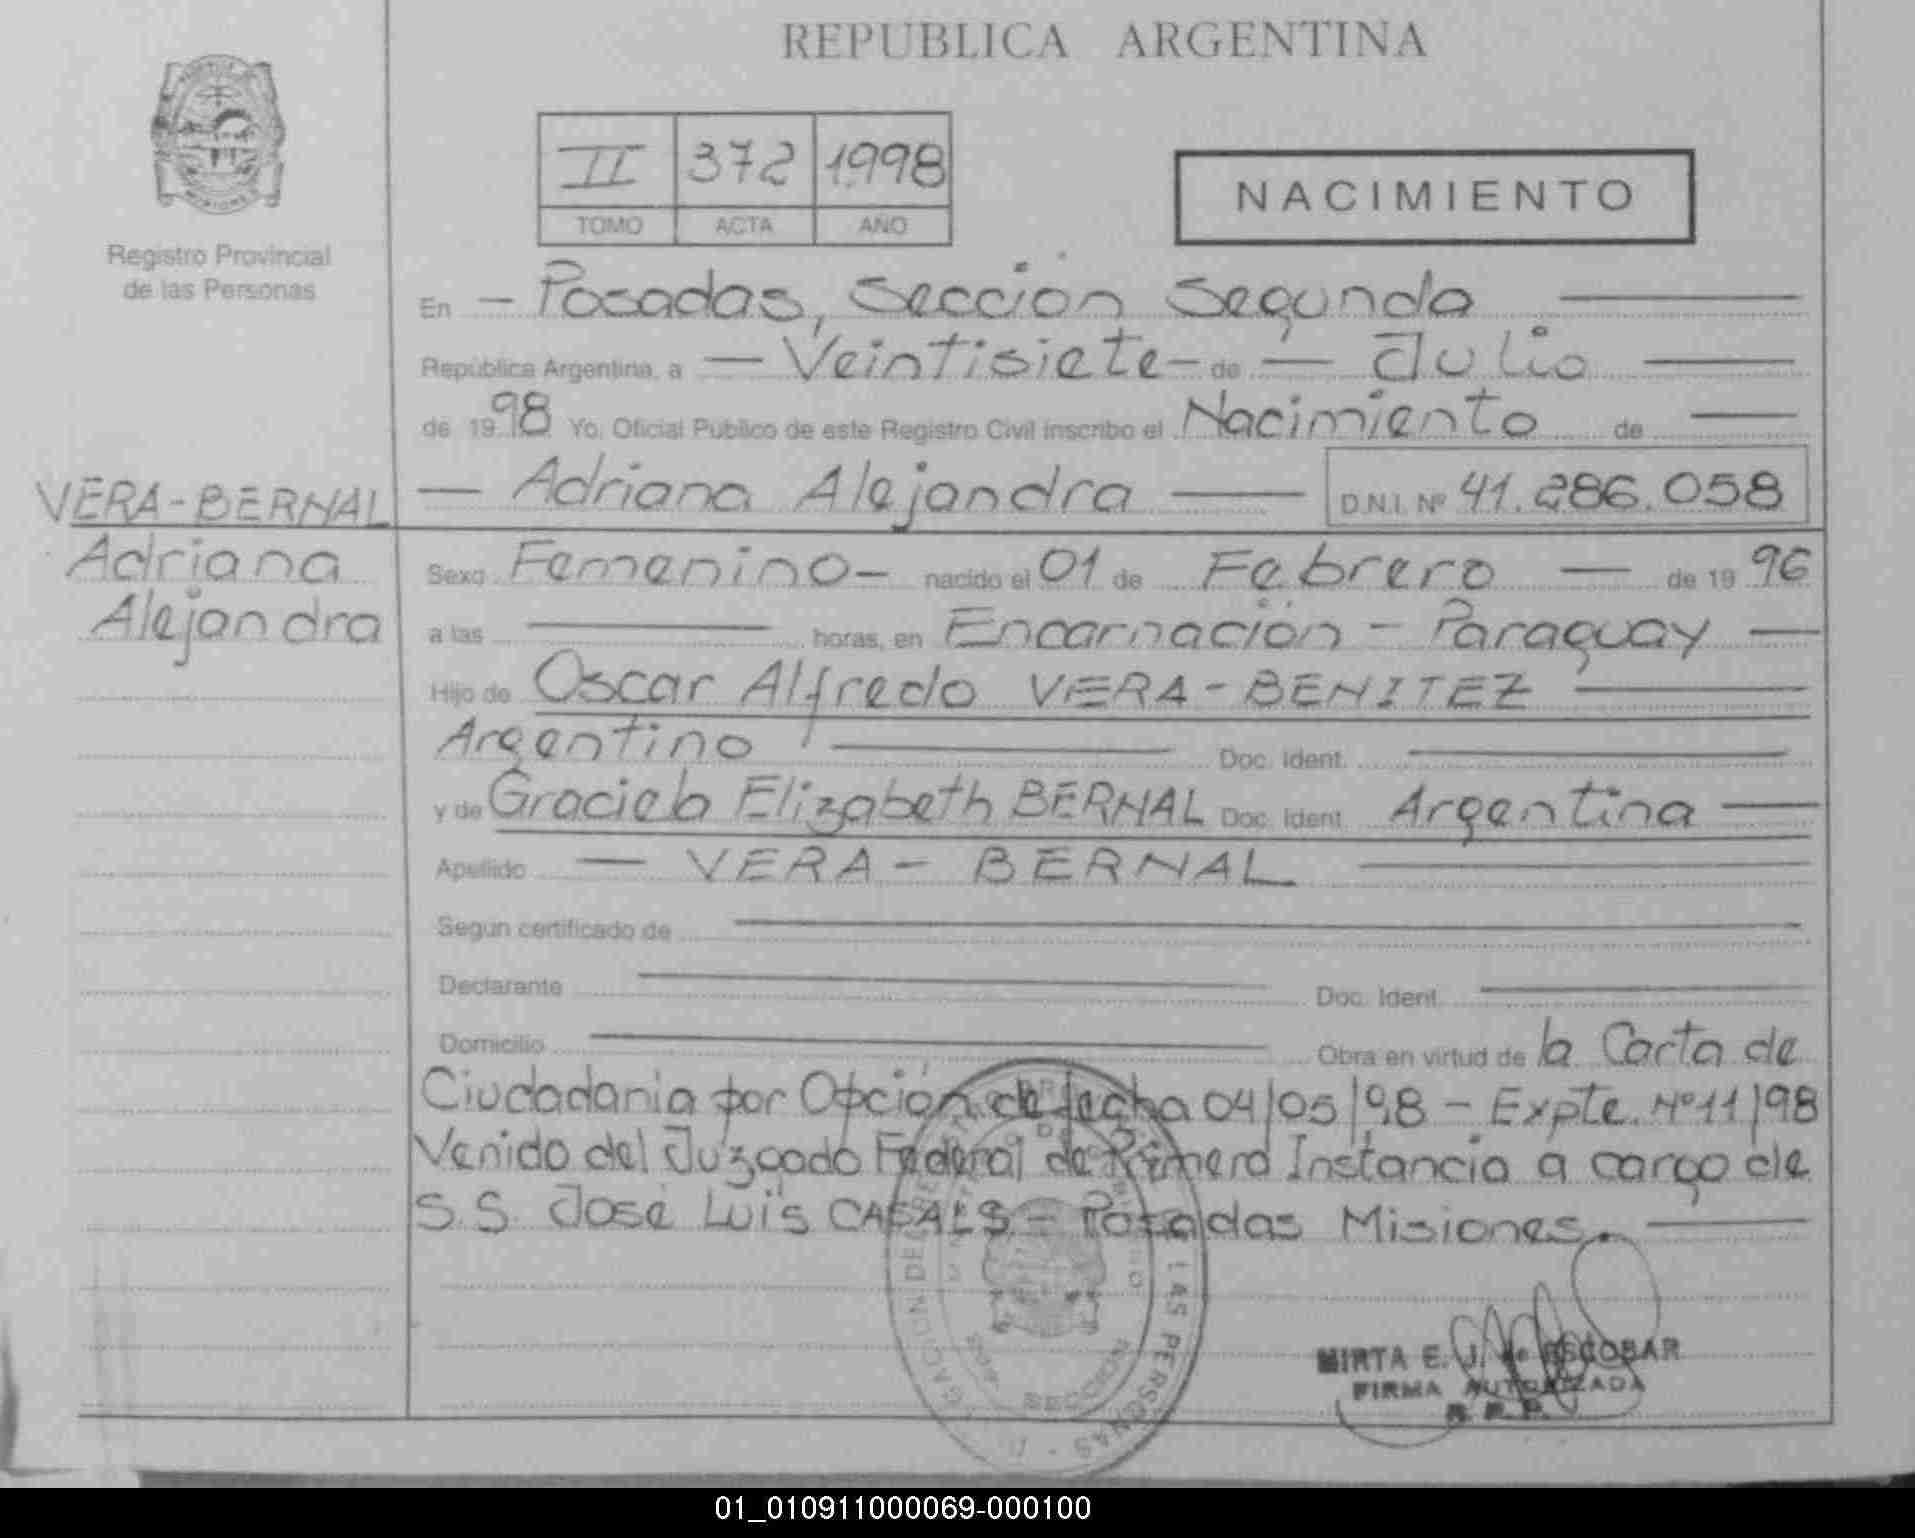 REPUBLICA ARGENTINA
II 372 1998
TOMO ACTA AÑO
NACIMIENTO
Registro Provincial
de las Personas
En — Posadas, Sección Segunda —
República Argentina, a — Veintisiete — de — Julio —
de 1998 Yo, Oficial Público de este Registro Civil inscribo el Nacimiento de —
— Adriana Alejandra — D.N.I. Nº 41.286.058
VERA-BERNAL
Adriana
Alejandra
Sexo Femenino — nacido el 01 de Febrero — de 1996
a las — horas, en Encarnación - Paraguay —
Hijo de Oscar Alfredo VERA-BENITEZ —
Argentino — Doc. Ident. —
y de Graciela Elizabeth BERNAL Doc. Ident. Argentina —
Apellido — VERA - BERNAL —
Según certificado de —
Declarante — Doc. Ident. —
Domicilio — Obra en virtud de la Carta de
Ciudadania por Opción de fecha 04/05/98 - Expte. Nº 11/98
Venido del Juzgado Federal de Primera Instancia a cargo de
S.S. José Luis CASALS - Posadas Misiones. —
LAS PERSONAS
MIRTA E. J. de ESCOBAR
FIRMA AUTORIZADA
R. P. P.
01_010911000069-000100